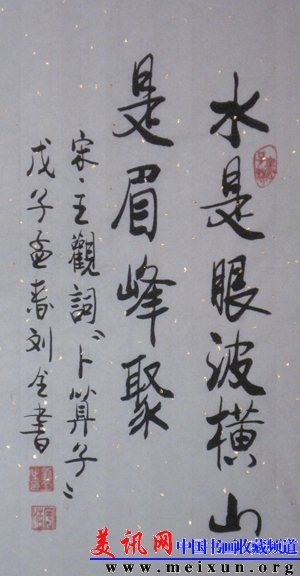 水是眼波横山
是眉峰聚
宋王觀詞卜算子
戊子孟春刘全書
美讯网 中国书画收藏频道
www.meixun.org